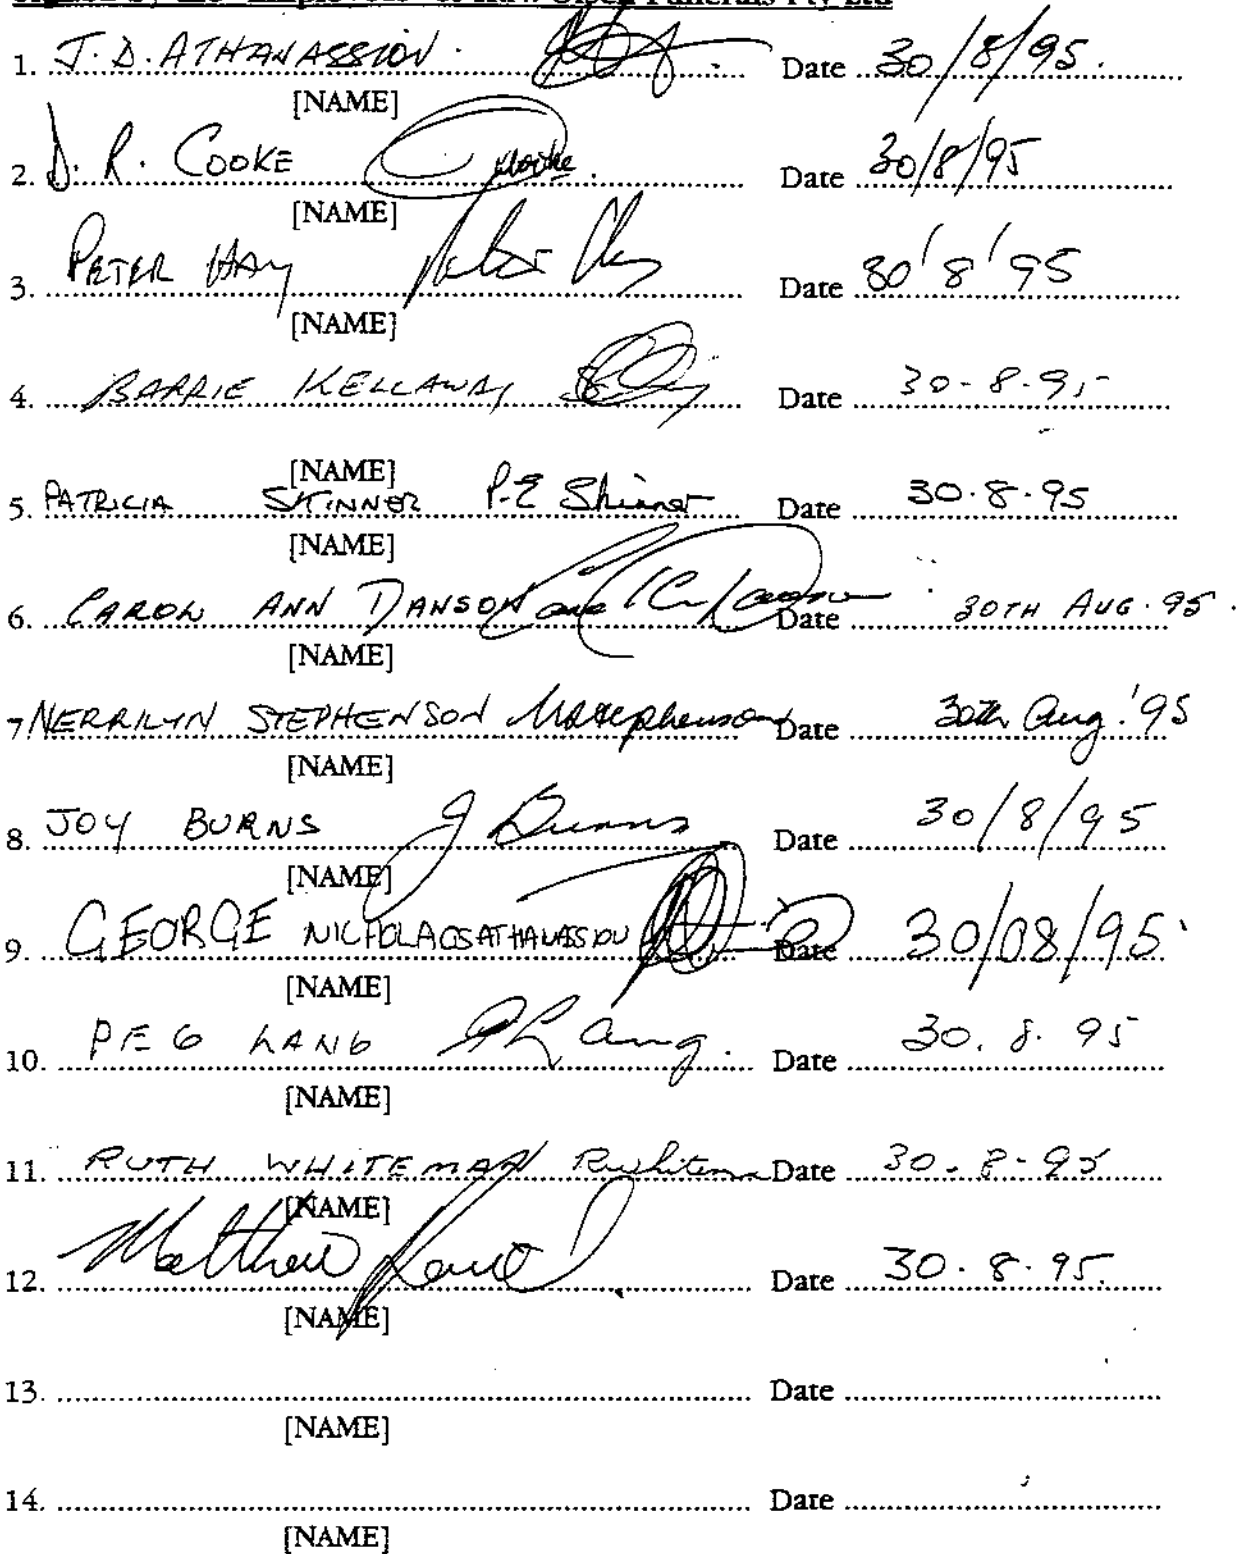 Olsen Funerals Pty Ltd
1. J.D. ATHANASSIOV. Date 30/8/95.
[NAME]
2. D. R. COOKE Date 30/8/95
[NAME]
3. PETER HAY Peter Hay Date 30/8/95
[NAME]
4. BARRIE KELLAWAY Date 30-8-95
[NAME]
5. PATRICIA SKINNER P.E Skinner Date 30.8.95
[NAME]
6. CAROLN ANN DANSON Date 30TH AUG. 95.
[NAME]
7 NERRILYN STEPHENSON Date 30th Aug. '95
[NAME]
8. JOY BURNS J Burns Date 30/8/95
[NAME]
9. GEORGE NICHOLAOS ATHANASSIOU Date 30/08/95
[NAME]
10. PEG LANG P Lang. Date 30. 8. 95
[NAME]
11. RUTH WHITEMAN Date 30-8-95
[NAME]
12. Matthew Date 30.8.95.
[NAME]
13. Date
[NAME]
14. Date
[NAME]